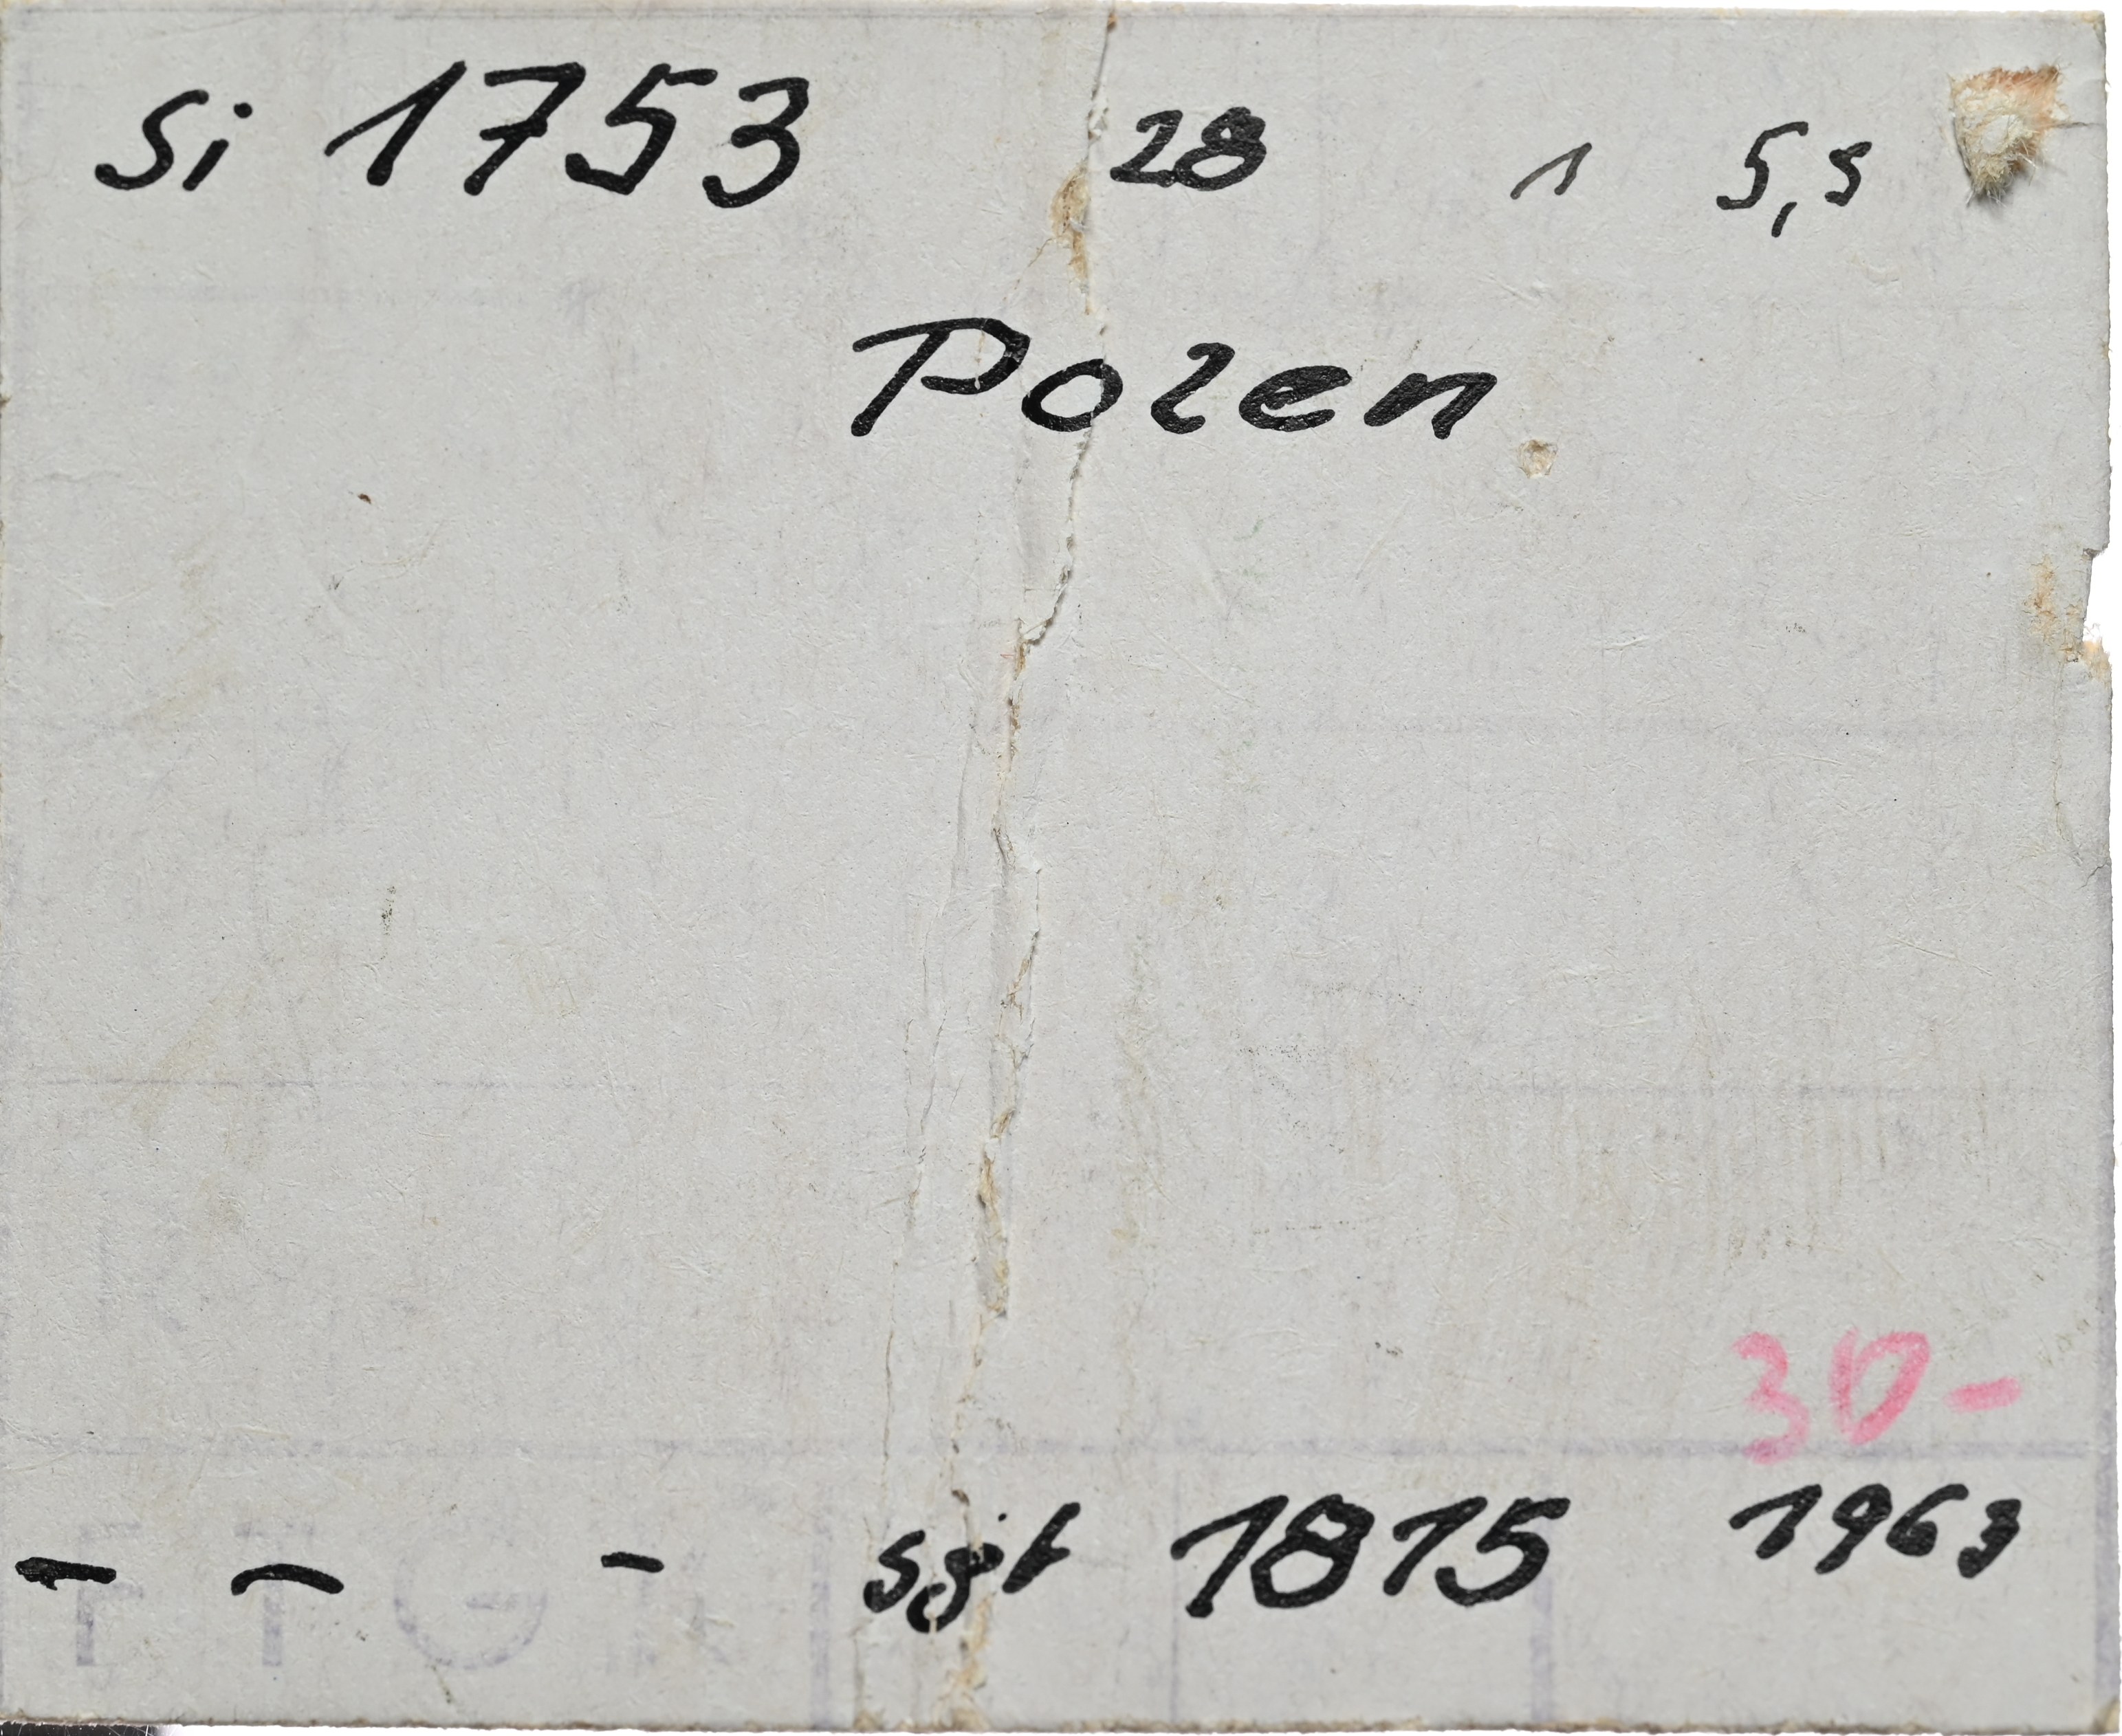 Si 1753 28 1 5,5
Polen
30-
- - - sgt 1815 1963